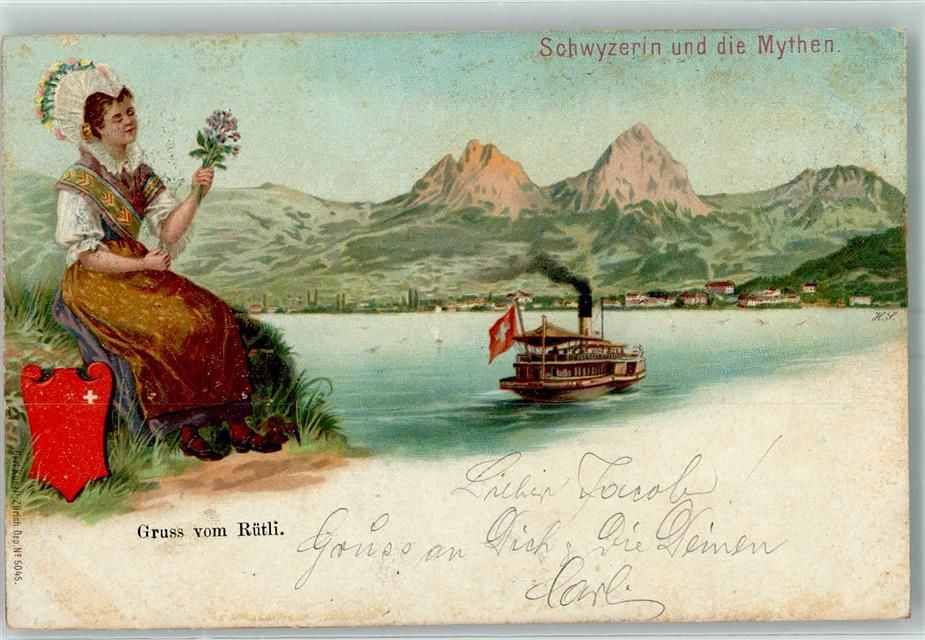 Schwyzerin und die Mythen.
H.S.
Gruss vom Rütli.
Lieber Jacob
Gruss an Dich, die Deinen
Carl
Zürich Dep. Nº 5045.